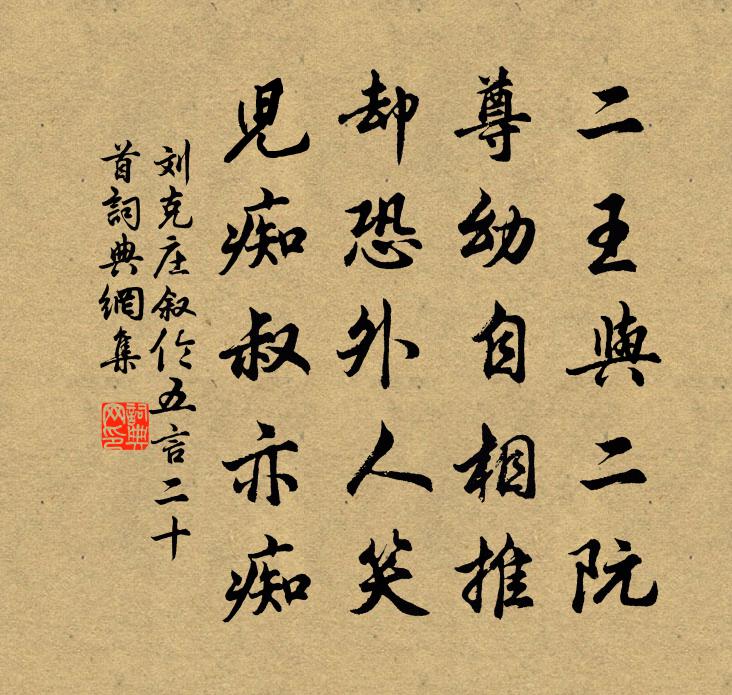 二王與二阮
尊幼自相推
却恐外人笑
児痴叔亦痴
刘克庄叙伦五言二十
首詞典網集
詞典网印